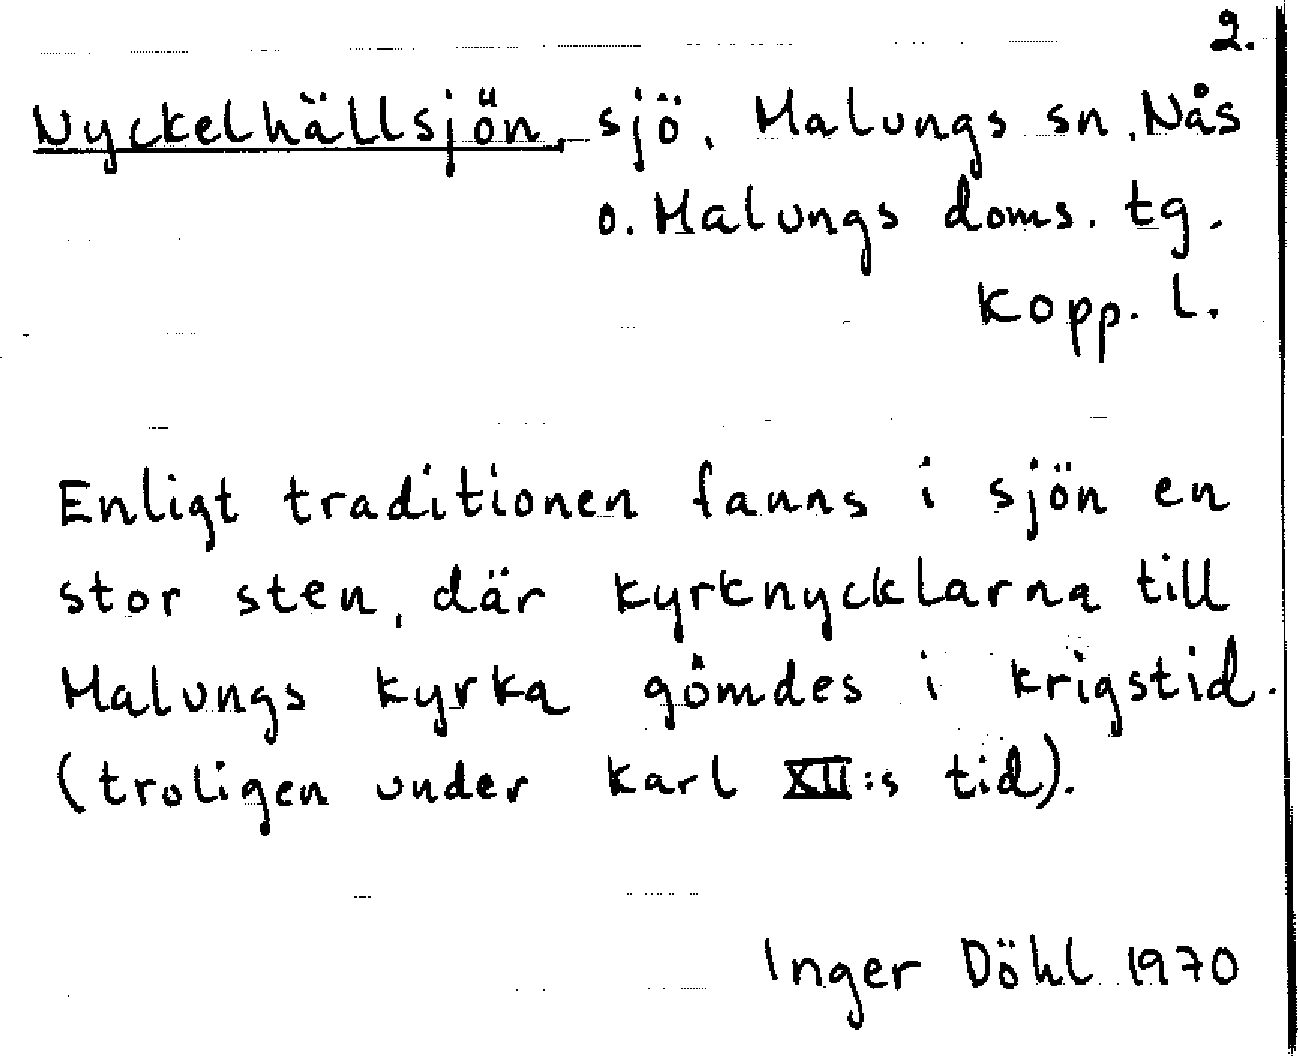 2.
Nyckelhällsjön, sjö, Malungs sn, Nås
o. Malungs doms. tg.
Kopp. l.
Enligt traditionen fanns i sjön en
stor sten, där kyrknycklarna till
Malungs kyrka gömdes i krigstid.
(troligen under Karl XII:s tid).
Inger Döhl 1970